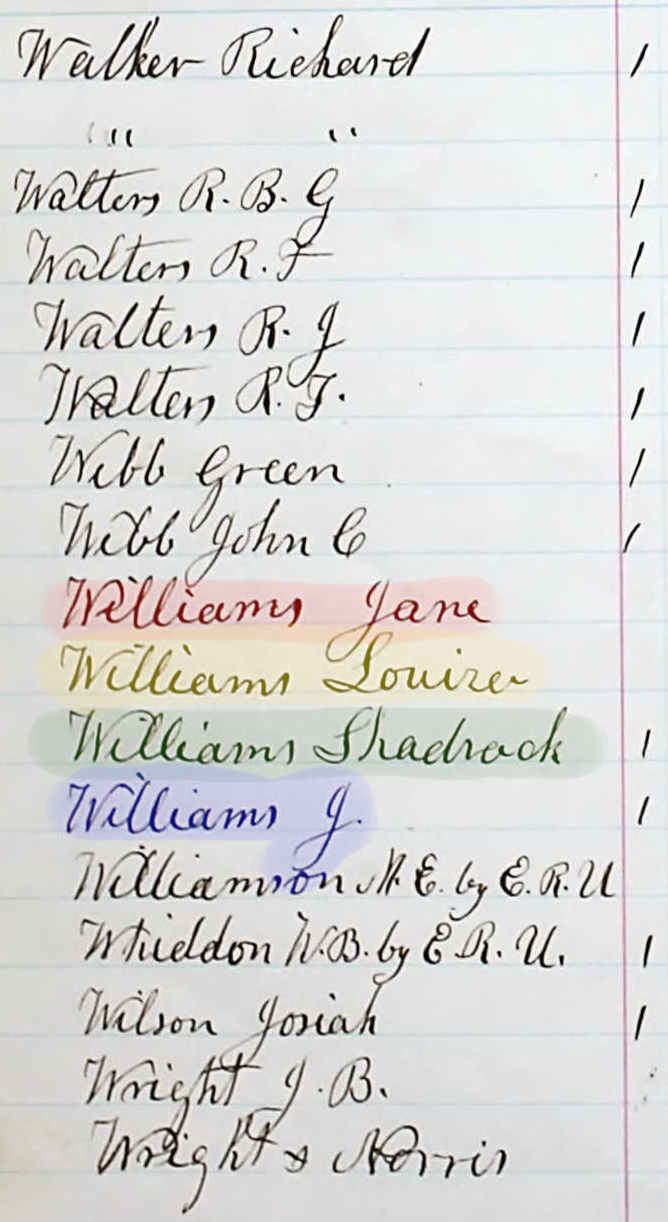 Walker Richard 1
" "
Walters R. B. G 1
Walters R. F 1
Walters R. J 1
Walters R. T. 1
Webb Green 1
Webb John C 1
Williams Jane
Williams Louiza
Williams Shadrack 1
Williams J. 1
Williamson M. E. by E. R. U
Whiddon W. B. by E. R. U. 1
Wilson Josiah 1
Wright J. B.
Wright & Norris